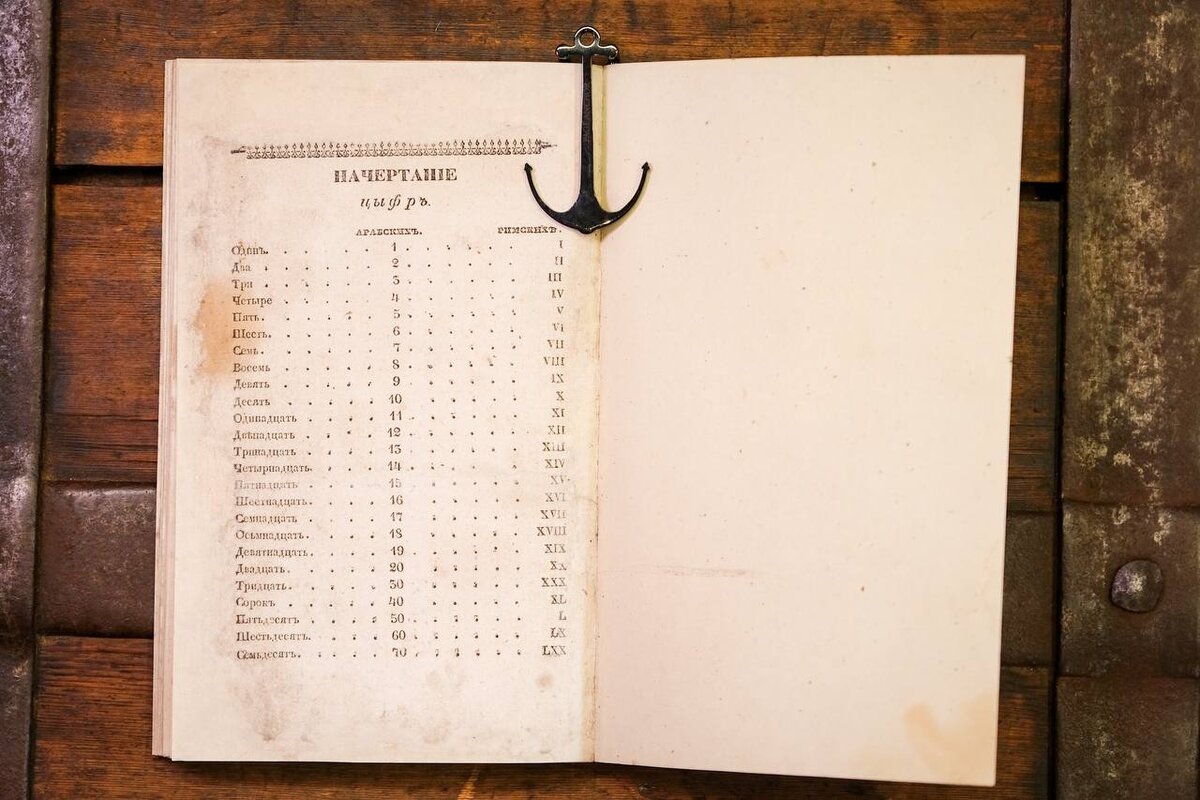 НАЧЕРТАНІЕ
цыфръ.
АРАБСКИХЪ. РИМСКИХЪ.
Одинъ. . . . . . 1 . . . . . . I
Два . . . . . . 2 . . . . . . II
Три . . . . . . 3 . . . . . . III
Четыре . . . . . 4 . . . . . . IV
Пять. . . . . . 5 . . . . . . V
Шесть. . . . . . 6 . . . . . . VI
Семь. . . . . . 7 . . . . . . VII
Восемь . . . . . 8 . . . . . . VIII
Девять . . . . . 9 . . . . . . IX
Десять . . . . . 10 . . . . . X
Одинадцать . . . . 11 . . . . . XI
Двѣнадцать . . . . 12 . . . . . XII
Тринадцать . . . . 13 . . . . . XIII
Четырнадцать. . . . 14 . . . . . XIV
Пятнадцать . . . . 15 . . . . . XV
Шестнадцать. . . . 16 . . . . . XVI
Семнадцать . . . . 17 . . . . . XVII
Осьмнадцать. . . . 18 . . . . . XVIII
Девятнадцать. . . . 19 . . . . . XIX
Двадцать. . . . . 20 . . . . . XX
Тридцать. . . . . 30 . . . . . XXX
Сорокъ . . . . . 40 . . . . . XL
Пятьдесятъ . . . . 50 . . . . . L
Шестьдесятъ. . . . 60 . . . . . LX
Семьдесятъ. . . . . 70 . . . . . LXX